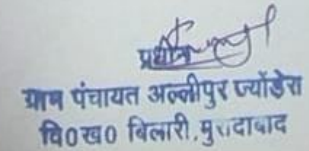 प्रधान
ग्राम पंचायत अल्लीपुर ज्योंडेरा
वि0ख0 बिलारी,मुरादाबाद